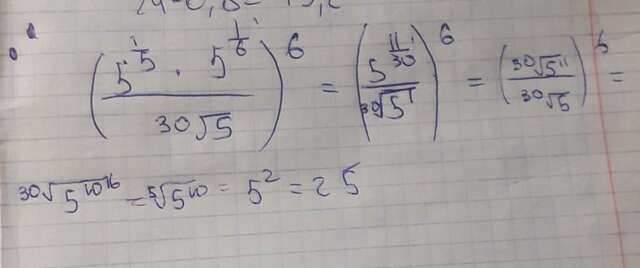 (5^{1/5} · 5^{1/6} / ³⁰√5)^6 = (5^{11/30} / ³⁰√5)^6 = (³⁰√5^{11} / ³⁰√5)^6 =
³⁰√5^{10^{16}} = ⁵√5^{10} = 5² = 25